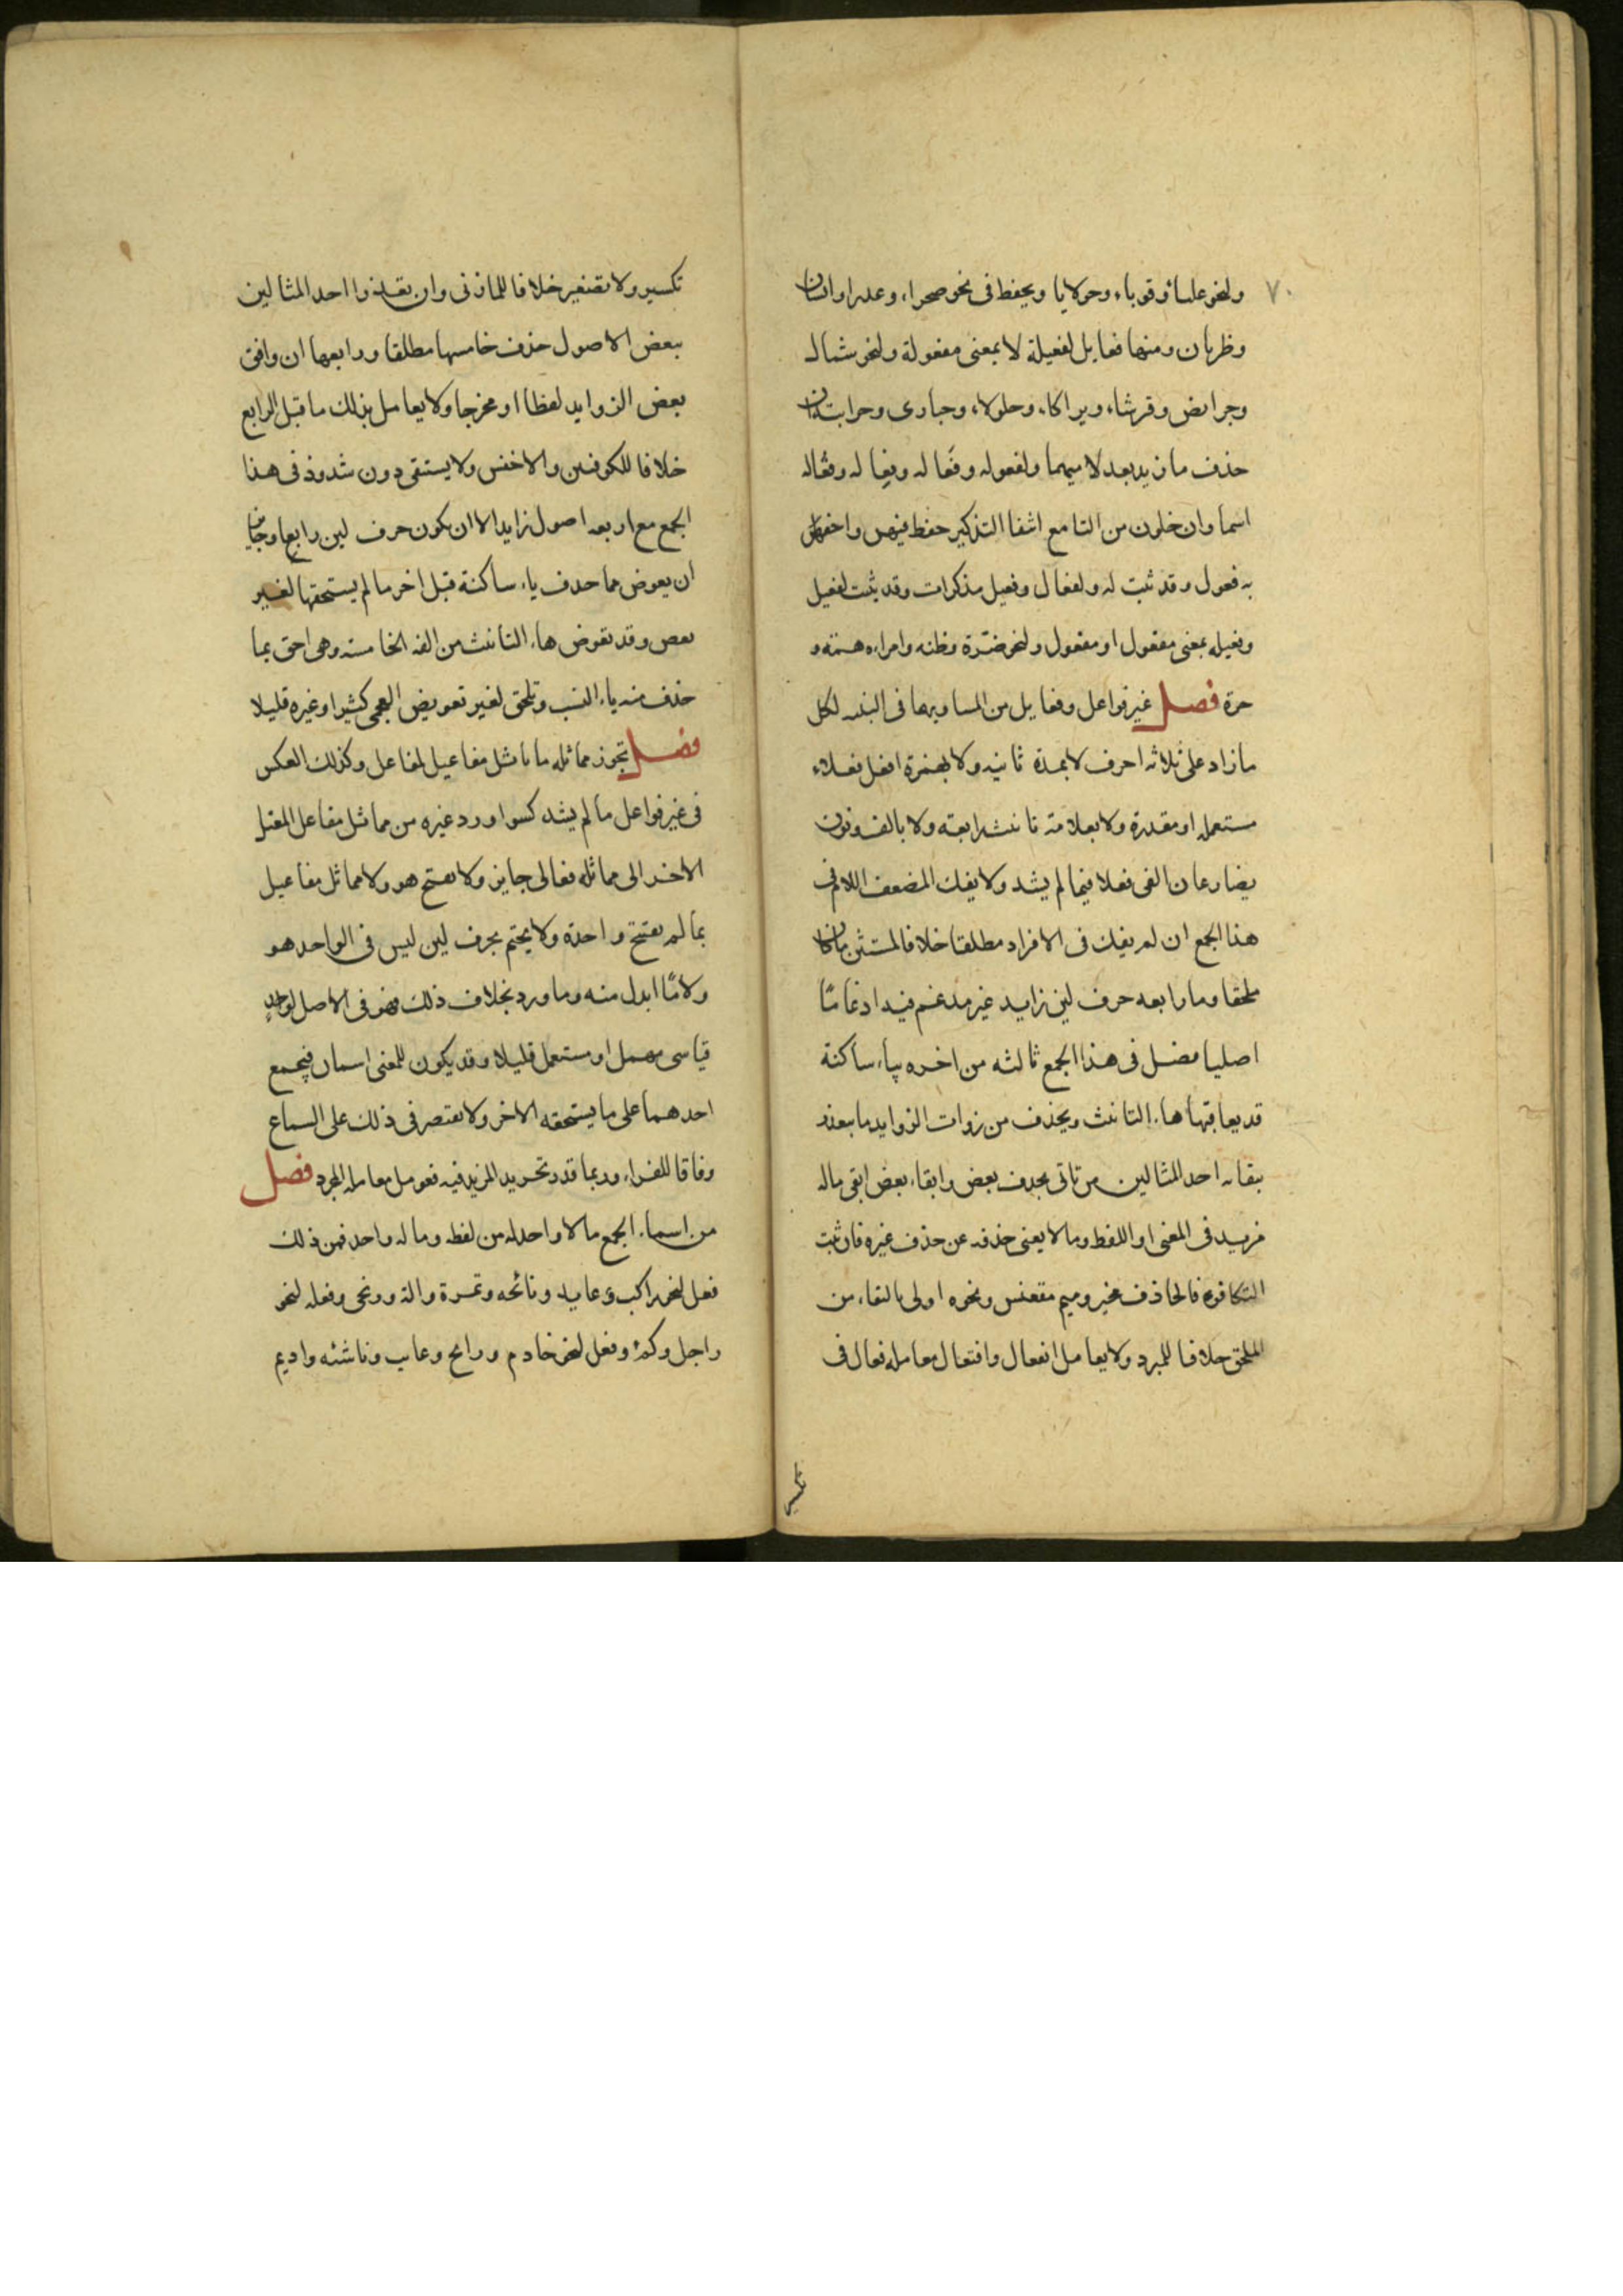 ٧٠
ولنحو علباء وقوباء وحولايا ويحفظ فى نحو صحراء وعذرا وانسان
وظربان ومنها فعايل لفعيلة لا بمعنى مفعولة ولنحو شمال
وجرايض وقريثاء وبراكاء وجلولاء وحبارى وحزابية ان
حذف ما زيد بعد لاميهما ولفعوله وفَعاله وفِعاله وفُعاله
اسما وان خلون من التا مع انتفا التذكير حفظ فيهن واحقهن
به فعول وقد ثبت له ولفعال وفعيل مذكرات وقد ثبت لفعيل
وفعيله بمعنى مفعول او مفعول ولنحو ضرّة وظنه وامراه همّة و
حرة فصل غير فواعل وفعايل من المساويهما فى البنيه لكل
ما زاد على ثلاثه احرف لا بمدة ثانيه ولا بهمزة افعل فعلاء
مستعمله او مقدرة ولا بعلامة تانيث رابعة ولا بالف ونون
يضارعان الفى فعلا فيما لم يشذ ولا يفك المضعف اللام فى
هذا الجمع ان لم يفك فى الافراد مطلقا خلافا لمستثن ما كان
ملحقا وما رابعه حرف لين زايد غير مدغم فيه ادغاما
اصليا فصل فى هذا الجمع ثالثه من اخره بياء ساكنة
قد يعاقبها هاء التانيث ويحذف من زوات الزوايد ما يتعذر
بقائه احد المثالين من تاتى بحذف بعض وابقاء بعض ابقى ماله
مزيد فى المعنى او اللفظ وما لا يغنى حذفه عن حذف غيره فان ثبت
التكافوء فالحاذف مخير وميم مقعنس ونحوه اولى بالبقاء من
الملحق خلافا للمبرد ولا يعامل انفعال وافتعال معامله فعال فى
تكسير
تكسير ولا تصغير خلافا للمازنى وان تعذر احد المثالين
ببعض الاصول حذف خامسها مطلقا ورابعها ان وافق
بعض الزوايد لفظا او مخرجا ولا يعامل بذلك ما قبل الرابع
خلافا للكوفيين والاخفش ولا يستبقى دون شذوذ فى هذا
الجمع مع اربعه اصول زايد الا ان يكون حرف لين رابعا وجايز
ان يعوض مما حذف ياء ساكنة قبل اخر ما لم يستحقها لغير
تعويض وقد تعوض هاء التانيث من الفه الخامسته وهى احق بما
حذف منه ياء النسب وتلحق لغير تعويض العجمى كثيرا وغيره قليلا
فصل تجوز مماثله ما ماثل مفاعيل لمفاعل وكذلك العكس
فى غير فواعل ما لم يشذ كسوا ورد غيره من مماثل مفاعل المعتل
الاخر الى مماثله فعالى جايز ولا يفتتح هو ولا مماثل مفاعيل
بما لم يفتتح واحدة ولا يختم بحرف لين ليس فى الواحد هو
ولا مّا ابدل منه وما ورد بخلاف ذلك فهو فى الاصل لواحد
قياسى مهمل او مستعمل قليلا وقد يكون للمعنى اسمان فيجمع
احدهما على ما يستحقه الاخر ولا يقتصر فى ذلك على السماع
وفاقا للفراء وربما قدر تجريد المزيد فيه فعومل معامله المجرد فصل
من اسماء الجمع ما لا واحد له من لفظه وما له واحد فمن ذلك
فعل لنحو راكب وعايد ونائحه وتمرة والة وزنجى وفعله لنحو
راجل وكمء وفعل لنحو خادم ورايح وعايب وناشئه واديم